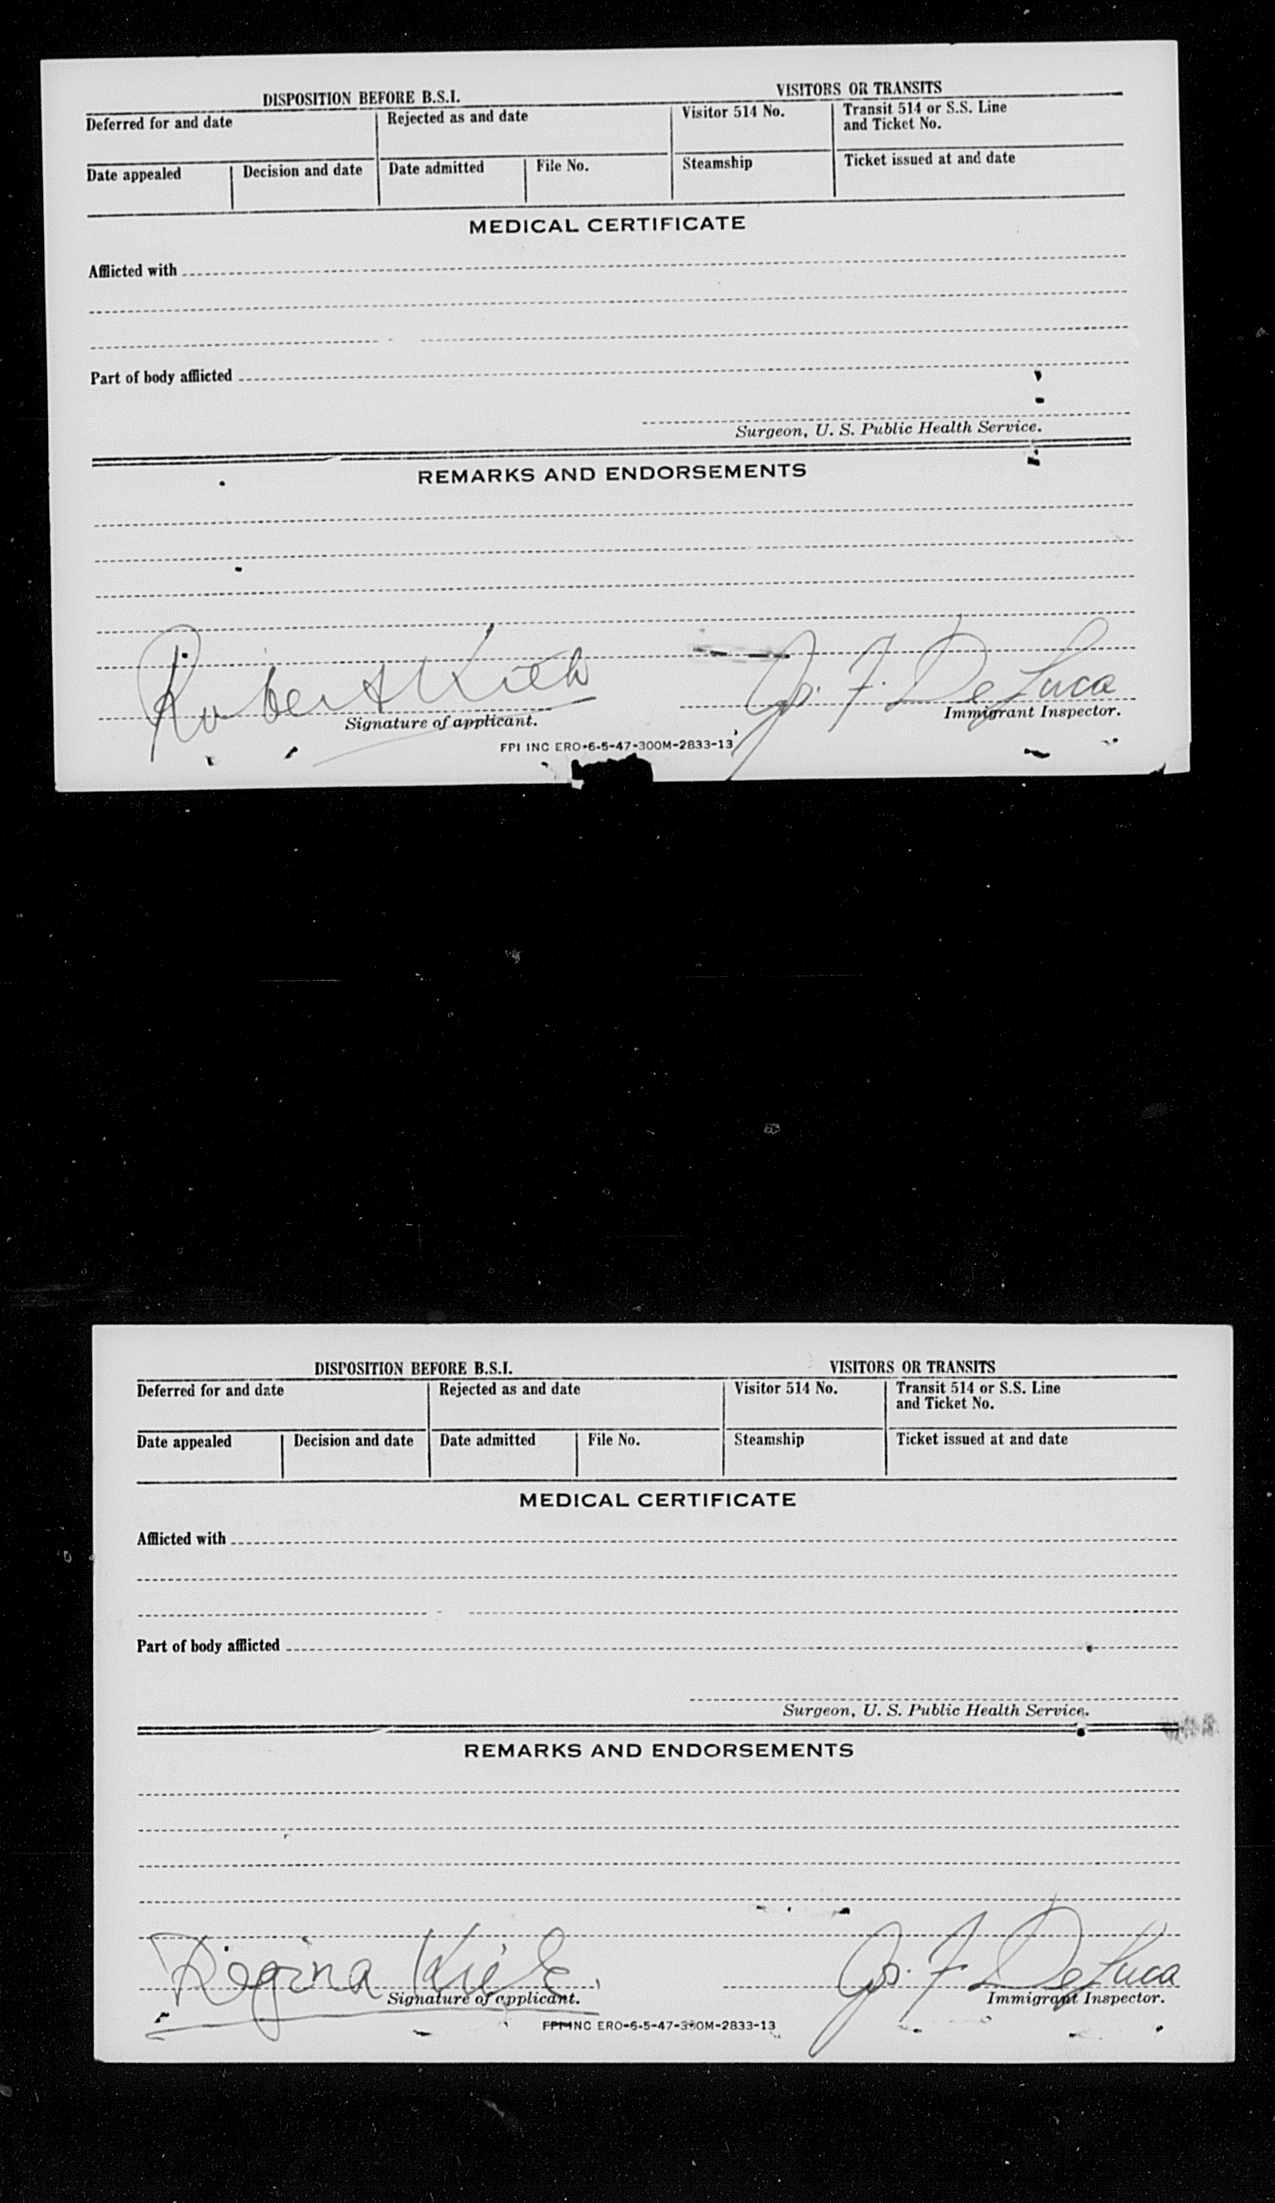 DISPOSITION BEFORE B.S.I.
VISITORS OR TRANSITS
Deferred for and date
Rejected as and date
Visitor 514 No.
Transit 514 or S.S. Line
and Ticket No.
Date appealed
Decision and date
Date admitted
File No.
Steamship
Ticket issued at and date
MEDICAL CERTIFICATE
Afflicted with
Part of body afflicted
Surgeon, U. S. Public Health Service.
REMARKS AND ENDORSEMENTS
Robert
Jos. F. DeLuca
Signature of applicant.
Immigrant Inspector.
FPI INC ERO-6-5-47-300M-2833-13
DISPOSITION BEFORE B.S.I.
VISITORS OR TRANSITS
Deferred for and date
Rejected as and date
Visitor 514 No.
Transit 514 or S.S. Line
and Ticket No.
Date appealed
Decision and date
Date admitted
File No.
Steamship
Ticket issued at and date
MEDICAL CERTIFICATE
Afflicted with
Part of body afflicted
Surgeon, U. S. Public Health Service.
REMARKS AND ENDORSEMENTS
Regina
Jos. F. DeLuca
Signature of applicant.
Immigrant Inspector.
FPI INC ERO-6-5-47-300M-2833-13